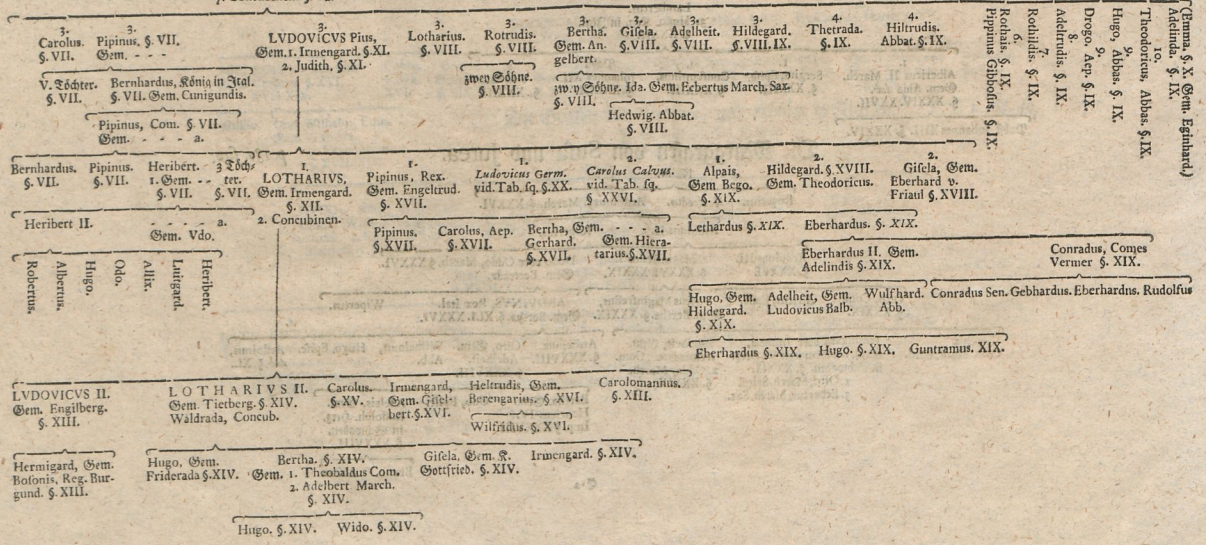 3.
Carolus.
§. VII.
Pipinus, §. VII.
Gem. - - -
3.
LVDOVICUS Pius,
Gem. 1. Irmengard. §. XI.
2. Judith, §. XI.
3.
Lotharius.
§. VIII.
3.
Rotrudis.
§. VIII.
3.
Bertha.
Gem. An.
gelbert.
3.
Gisela.
§. VIII.
3.
Adelheit.
§. VIII.
3.
Hildegard.
§. VIII. IX.
4.
Thetrada.
§. IX.
4.
Hiltrudis.
Abbat. §. IX.
Pippinus Gibbosus. §. IX.
6.
Rothais. §. IX.
7.
Rothildis. §. IX.
8.
Adeltrudis. §. IX.
9.
Drogo. Aep. §. IX.
9.
Hugo, Abbas. §. IX.
Theodoricus, Abbas. §. IX.
10.
Adelinda. §. IX.
(Emma. §. X. Gem. Eginhard.)
V. Töchter.
§. VII.
Bernhardus, König in Ital.
§. VII. Gem. Cunigundis.
zwey Söhne.
§. VIII.
zw. y Söhne.
§. VIII.
Ida. Gem. Ecbertus March. Sax.
Pipinus, Com. §. VII.
Gem. - - - a.
Hedwig. Abbat.
§. VIII.
Bernhardus.
§. VII.
Pipinus.
§. VII.
Heribert.
1. Gem. - -
§. VII.
3 Töch-
ter.
§. VII.
1.
LOTHARIUS,
Gem. Irmengard.
§. XII.
2. Concubinen.
1.
Pipinus, Rex.
Gem. Engeltrud.
§. XVII.
1.
Ludovicus Germ.
vid. Tab. sq. §. XX.
2.
Carolus Calvus.
vid. Tab. sq.
§ XXVI.
1.
Alpais,
Gem Bego.
§. XIX.
2.
Hildegard. §. XVIII.
Gem. Theodoricus.
2.
Gisela, Gem.
Eberhard v.
Friaul §. XVIII.
Heribert II.
- - - a.
Gem. Vdo.
Pipinus.
§. XVII.
Carolus, Aep.
§. XVII.
Bertha, Gem.
Gerhard.
§. XVII.
- - - a.
Gem. Hiera-
tarius. §. XVII.
Lethardus §. XIX.
Eberhardus. §. XIX.
Robertus.
Albertus.
Hugo.
Odo.
Allix.
Luitgard.
Heribert.
Eberhardus II. Gem.
Adelindis §. XIX.
Conradus, Comes
Vermer §. XIX.
Hugo, Gem.
Hildegard.
§. XIX.
Adelheit, Gem.
Ludovicus Balb.
Wulfhard.
Abb.
Conradus Sen. Gebhardus. Eberhardus. Rudolfus
Eberhardus §. XIX.
Hugo. §. XIX.
Guntramus. XIX.
LVDOVICVS II.
Gem. Engilberg.
§. XIII.
LOTHARIVS II.
Gem. Tietberg. §. XIV.
Waldrada, Concub.
Carolus.
§. XV.
Irmengard,
Gem. Gisel-
bert. §. XVI.
Heltrudis, Gem.
Berengarius. §. XVI.
Carolomannus.
§. XIII.
Wilfridus. §. XVI.
Hermigard, Gem.
Bosonis, Reg. Bur-
gund. §. XIII.
Hugo, Gem.
Friderada §. XIV.
Bertha. §. XIV.
Gem. 1. Theobaldus Com.
2. Adelbert March.
§. XIV.
Gisela, Gem. K.
Gottfried. §. XIV.
Irmengard. §. XIV.
Hugo. §. XIV.
Wido. §. XIV.